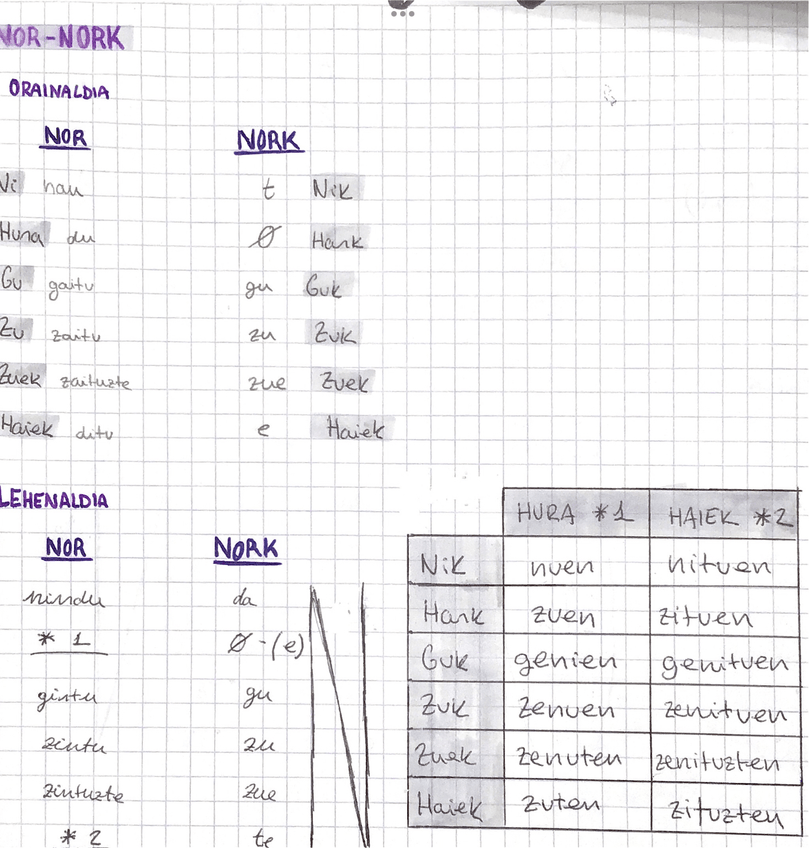 NOR-NORK
ORAINALDIA
NOR NORK
Ni nau t Nik
Hura du Ø Hark
Gu gaitu gu Guk
Zu zaitu zu Zuk
Zuek zaituzte zue Zuek
Haiek ditu e Haiek
LEHENALDIA
NOR NORK
nindu da
* 1 Ø-(e)
gintu gu
zintu zu
zintuzte zue
* 2 te
N
HURA *1 HAIEK *2
Nik nuen nituen
Hark zuen zituen
Guk genien genituen
Zuk zenuen zenituen
Zuek zenuten zenituzten
Haiek zuten zituzten